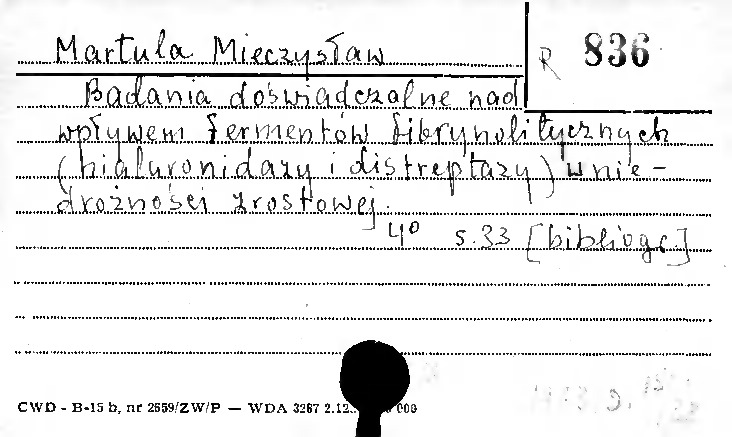 Martula Mieczysław
R 836
Badania doświadczalne nad
wpływem fermentów fibrynolitycznych
(hialuronidazy i distreptazy) w nie-
drożności zrostowej.
4° s. 33 [bibliogr.]
CWD - B-15 b, nr 2659/ZW/P — WDA 3267 2.12. 000